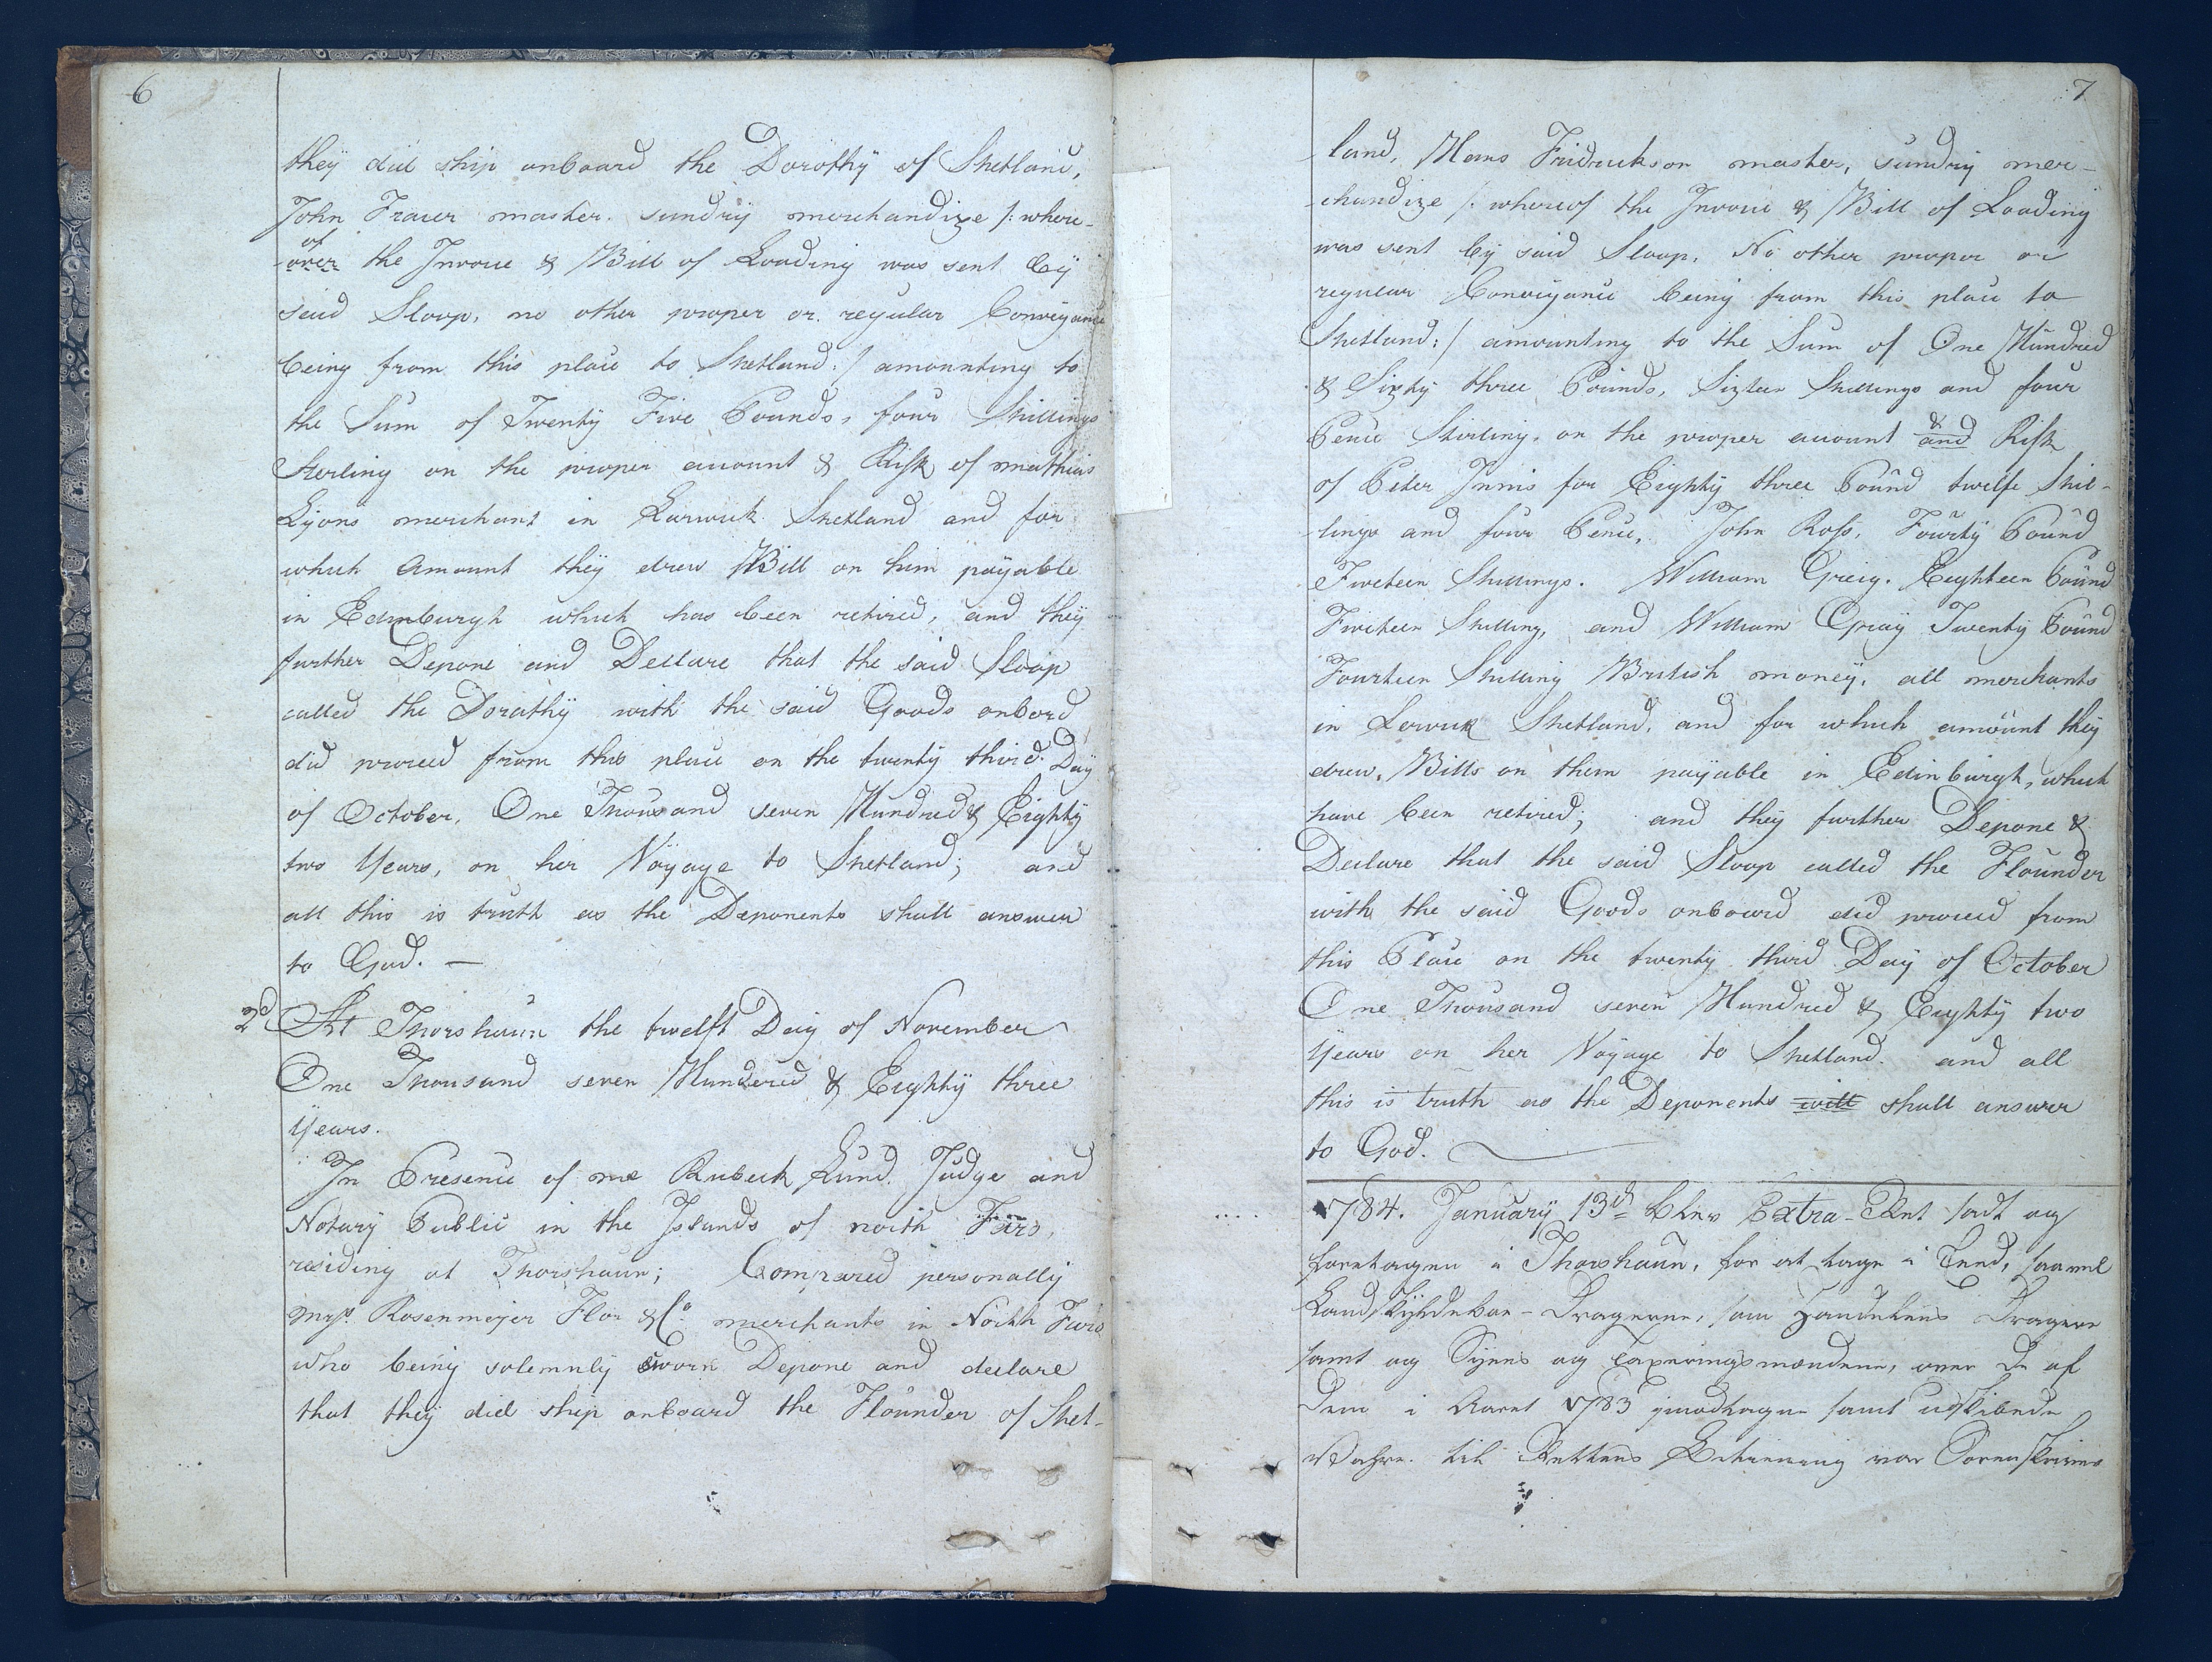 6
they did ship onboard the Dorothÿ of Shetland,
John Fraier master. sundrÿ merchandize /: where-
of
-over the Invoice & Bill of Loading was sent bÿ
said Sloop, no other proper or regular Conveÿance
being from this place to Shetland :/ amounting to
the Sum of Twenty Five Pounds, four Shillings
Sterling on the proper account & Risk of mathias
Lÿons merchant in Larwick Shetland and for
which Amount theÿ drew Bill on him paÿable
in Edinburgh which has been retired, and theÿ
further Depone and Declare that the said Sloop
called the Dorathÿ with the said Goods onbord
did proceed from this place on the twenty third Daÿ
of October, One Thousand seven Hundred & Eighty
two Years, on her Voÿage to Shetland; and
all this is truth as the Deponents shall answer
to God. —
2d At Thorshaun the twelft Daÿ of November
One Thousand seven Hundered & Eightÿ three
Years.
In Presence of me Rubeck Lund. Judge and
Notarÿ Public in the Islands of north Færo,
residing at Thorshaun; Compeared personally
Mrss. Rosenmeÿer Flor & Co. merchants in North Færo
who being solemnlÿ sworn Depone and declare
that theÿ did ship onboard the Flounder of Shet-
7
land, Hans Fridrickson master, sundrÿ mer-
-chandize /: whereof the Invoice & Bill of Loading
was sent bÿ said Sloop, No other proper or
regular Conveÿance being from this place to
Shetland :/ amounting to the Sum of One Hundred
& Sixtÿ three Pounds, Sixteen Shillings and four
&
Pence Stirling, on the proper account and Risk
of Peter Innis for Eightÿ three Pound twelfe Shil-
lings and four Pence, John Ross, Fourtÿ Pound
Fiveteen Shillings. William Greig. Eighteen Pound
Fiveteen Shilling, and William Graÿ Twentÿ Pound
Fourteen Shilling British moneÿ, all merchants
in Lerwick Shetland, and for which amount theÿ
drew Bills on them paÿable in Edinburgh, which
have been retired; and theÿ further Depone &
Declare that the said Sloop called the Flounder
with the said Goods onboard did proceed from
this Place on the twentÿ third Daÿ of October
One Thousand seven Hundred & Eightÿ two
Years on her Voÿage to Shetland. and all
this is truth as the Deponents will shall answer
to God.
1784. Januarÿ 13d blev Extra-Ret sadt og
foretagen i Thorshaun, for at tage i Eed, saavel
Landskÿldebær-Dragerne, som Handelens Dragere
samt og Sÿens og Taxeringsmændene, over de af
dem i Aaret 1783 imodtagne samt udskibede
Vahre. til Rettens Betiening var Sorenskriver